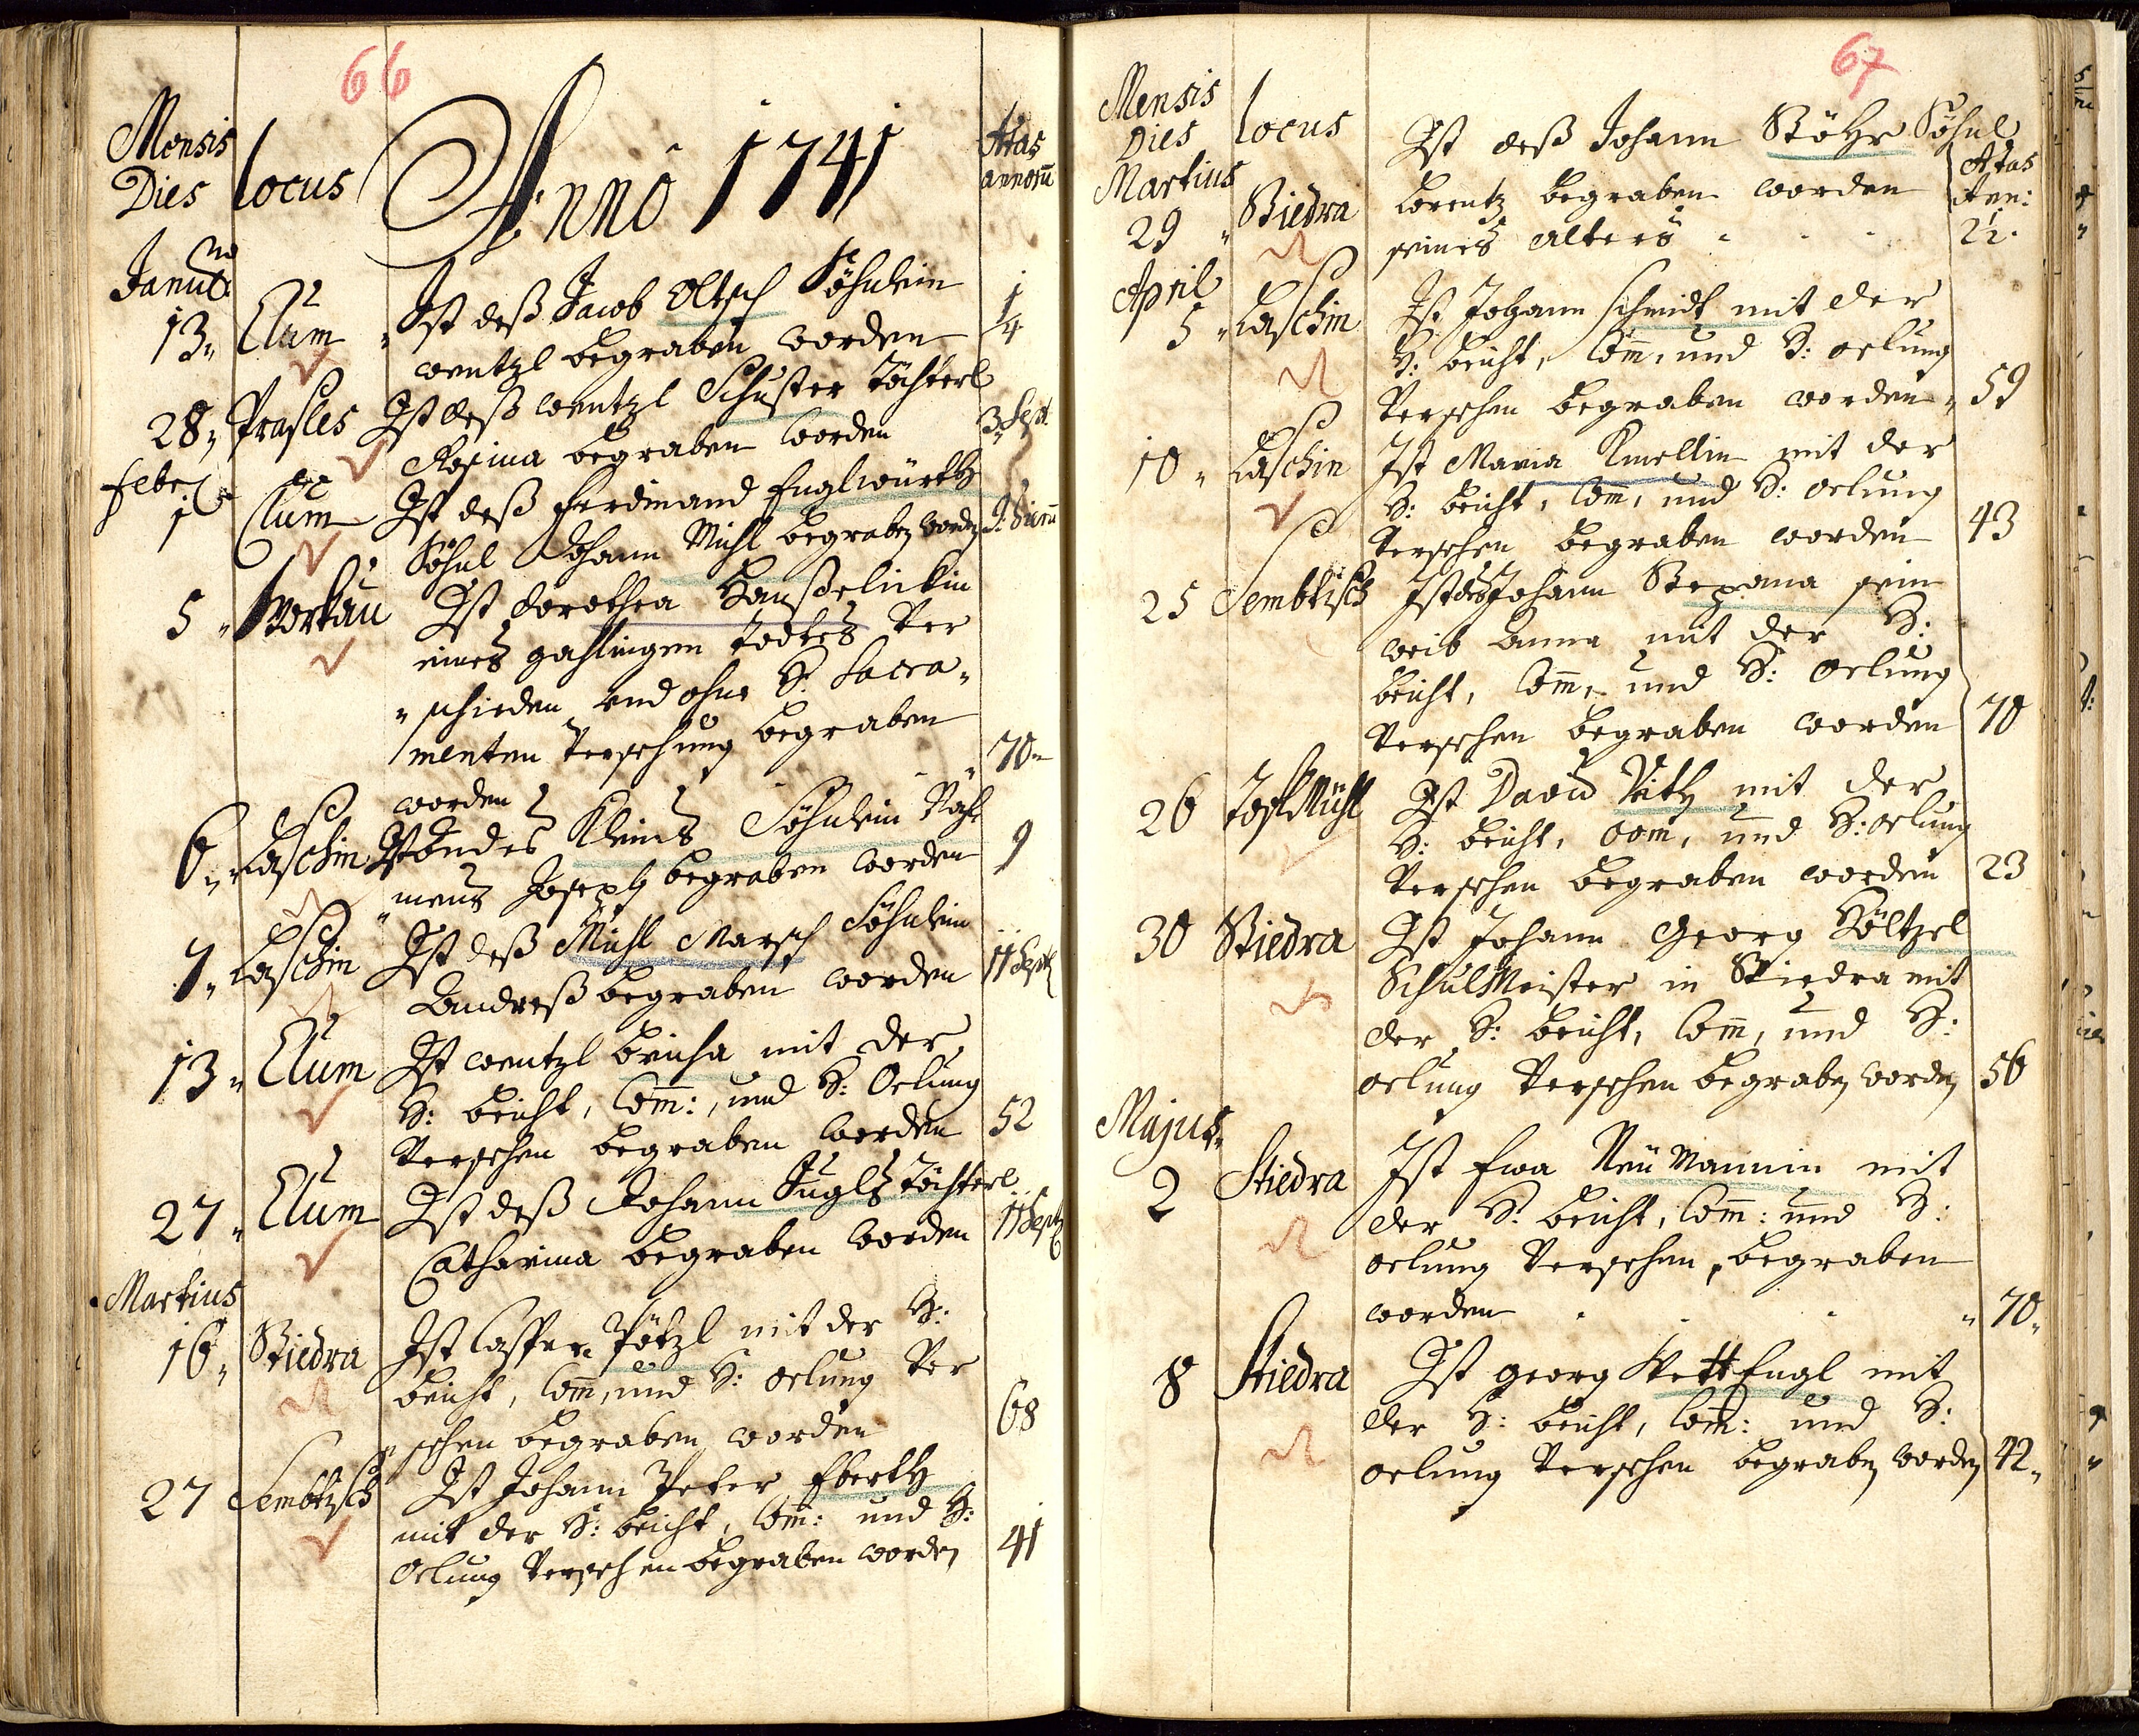 66
Mensis
Dies
locus
Anno 1741
Ætas
annorũ
Janu
13 Clum Ist deß Jacob Oltsch Söhnlein
wentzl begraben worden 1/4
28 Prasles Ist deß wentzl Schuster Töchterl
Rosina begraben worden 3 Sept
Febr
1 Clum Ist deß Ferdinand Englwürth
Söhnl Johann Michl begraben worden
5 Workau Ist Dorothea
eines gählingen Todtes Ver
schieden und ohne H. Sacra
menten Versehung begraben
worden 70
6 Laschin Ist Andres Kleins Söhnlein Nah
mens Joseph begraben worden 9
7 Laschin Ist deß Michl Marsch Söhnlein
Andreß begraben worden 11 Sept
13 Clum Ist wentzl bricha mit der
H: beicht, Com:, und H: Oelung
Versehen begraben worden 52
27 Clum Ist deß Johann Hugls Töchterl
Catharina begraben worden 11 Sept
Martius
16 Stiedra Ist Casper Pötzl mit der H:
beicht, Com, und H: oelung Ver
sehen begraben worden 68
27 Sembtisch Ist Johann Peter Eberth
mit der H: beicht, Com: und H:
Oelung Versehen begraben worden 41
67
Mensis
Dies
locus
Ist deß Johann Stöhr Söhnl
Ætas
Ann:
Martius
29 Stiedra Lorentz begraben worden
seines Alters 21
April
5 Laschin Ist Johann Schmidt mit der
H: beicht, Com, und H: oelung
Versehen begraben worden 59
10 Laschin Ist Maria Knellin mit der
H: beicht, Com, und H: oelung
Versehen begraben worden 43
25 Sembtisch Ist des Johann Stepana sein
weib Anna mit der H:
beicht, Com, und H: Oelung
Versehen begraben worden 70
26 Ist David Veith mit der
H: beicht, Com, und H: oelung
Versehen begraben worden 23
30 Stiedra Ist Johann Georg Höltzel
SchulMeister in Stiedra mit
der H: beicht, Com, und H:
oelung Versehen begraben worden 56
Majus
2 Stiedra Ist Eva Neumannin mit
der H: beicht, Com: und H:
oelung Versehen, begraben
worden 70
8 Stiedra Ist Georg Vett Engl mit
der H: beicht, Com: und H:
oelung Versehen begraben worden 42